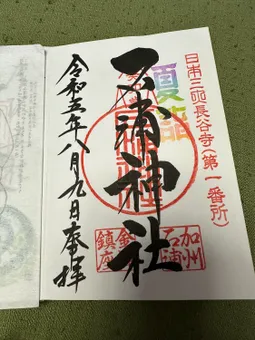 日本三所長谷寺(第一番所)
夏詣
石浦神社
加州
石浦
鎮座
令和五年八月九日奉拝